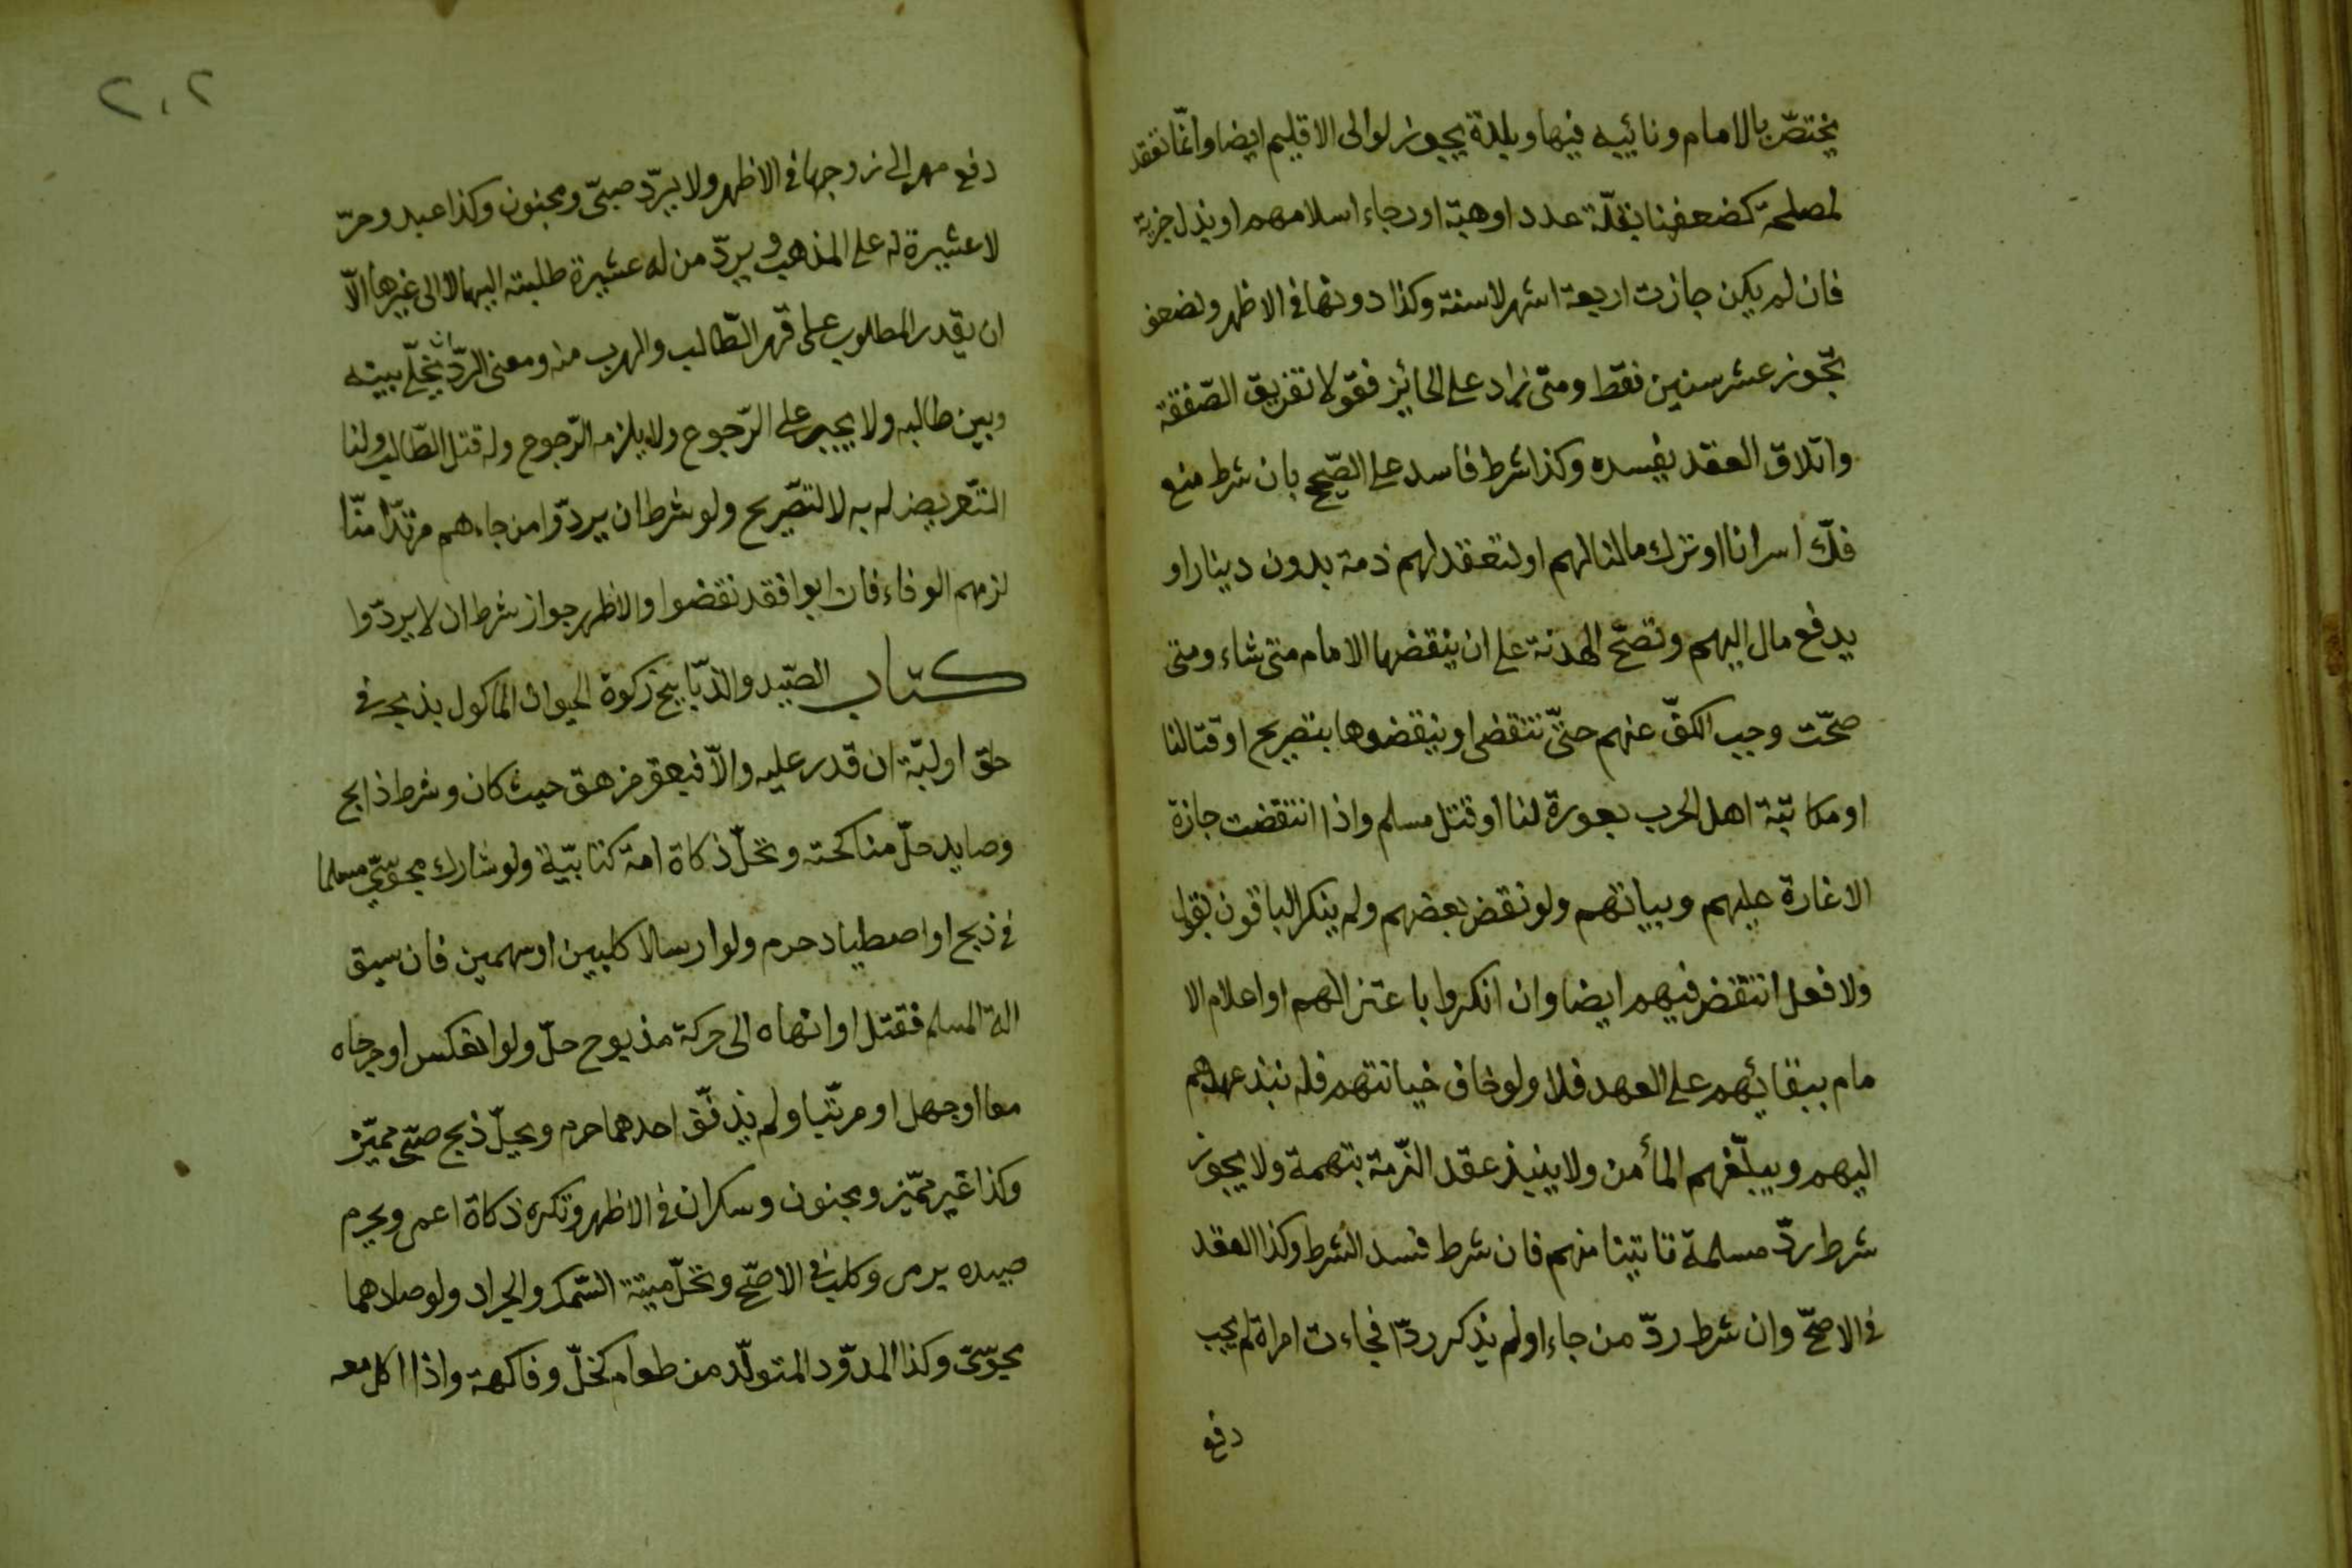 يختصّ بالامام ونائبه فيها وبلدة يجوز لوالى الاقليم ايضا وانّما تعقد
لمصلحة كضعفنا بقلّة عدد اوهبة اورجاء اسلامهم او بذل جزية
فان لم يكن جازت اربعة اشهر لا سنة وكذا دونها فى الاظهر ولضعف
تجّوز عشر سنين فقط ومتى زاد على الجائز فقولا تفريق الصّفقة
واتلاق العقد يفسده وكذا شرط فاسد على الصّحيح بان شرط منع
فكّ اسرانا او ترك مالنا لهم او لتعقد لهم ذمة بدون دينار او
يدفع مال اليهم وتصحّ الهدنة على ان ينقضها الامام متى شاء ومتى
صحّت وجب الكفّ عنهم حتّى تنقضى او ينقضوها بتصريح او قتالنا
او مكاتبة اهل الحرب بعورة لنا او قتل مسلم واذا انتقضت جازة
الاغارة عليهم وبياتهم ولو نقض بعضهم ولم ينكر الباقون بقول
ولا فعل انتقض فيهم ايضا وان انكروا باعتزالهم او اعلام الا
مام ببقائهم على العهد فلا ولو خاف خيانتهم فله نبذ عهدهم
اليهم ويبلّغهم المأمن ولا ينبذ عقد الذّمة بتهمة ولا يجوز
شرط ردّ مسلمة تاتينا منهم فان شرط فسد الشرط وكذا العقد
فى الاصحّ وان شرط ردّ من جاء او لم يذكر ردّا فجاءت امراة لم يجب
دفع
٢٠٢
دفع مهر الى زوجها فى الاظهر ولا يردّ صبىّ ومجنون وكذا عبد وحرّ
لا عشيرة له على المذهب ويردّ من له عشيرة طلبته اليها لا الى غيرها الّا
ان يقدر المطلوب على قهر الطّالب والهرب منه ومعنى الردّ ان يخلّى بينه
وبين طالبه ولا يجبر على الرّجوع ولا يلزمه الرّجوع وله قتل الطّالب ولنا
التّعريض له به لا لتصّريح ولو شرط ان يردّوا من جاءهم مرتدّا منّا
لزمهم الوفاء فان ابوا فقد نقضوا والاظهر جواز شرط ان لا يردّوا
كتاب الصّيد والذبّايح زكوة الحيوان الماكول بذبحه فى
حلق او لبّة ان قدر عليه والّا فبعقر مزهق حيث كان وشرط ذابح
وصايد حلّ مناكحته وتحلّ ذكاة امة كتابيّة ولو شارك مجوسّى مسلما
فى ذبح او اصطياد حرم ولو ارسالا كلبين او سهمين فان سبق
الة المسلم فقتل او انهاه الى حركة مذبوح حلّ ولو انعكس او جرحاه
معا او جهل او مرتّبا ولم يذفّق احدهما حرم ويحلّ ذبح صبّى مميّز
وكذا غير مميّز ومجنون وسكران فى الاظهر وتكره ذكاة اعمى ويحرم
صيده برمى وكلب فى الاصحّ وتحلّ ميتة السّمك والجراد ولو صادهما
مجوسّى وكذا المدوّد المتولّد من طعام كخلّ وفاكهة واذا اكل معه